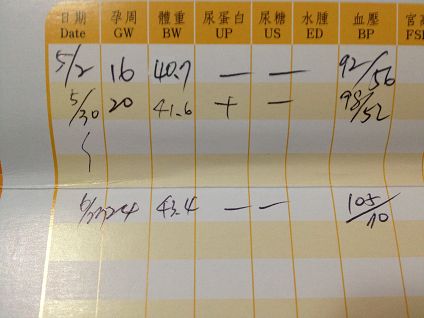 日期 孕周 體重 尿蛋白 尿糖 水腫 血壓 宮高
Date GW BW UP US ED BP FSH
5/2 16 40.7 — — 92/56
5/30 20 41.6 + — 98/52
24 43.4 — — 105